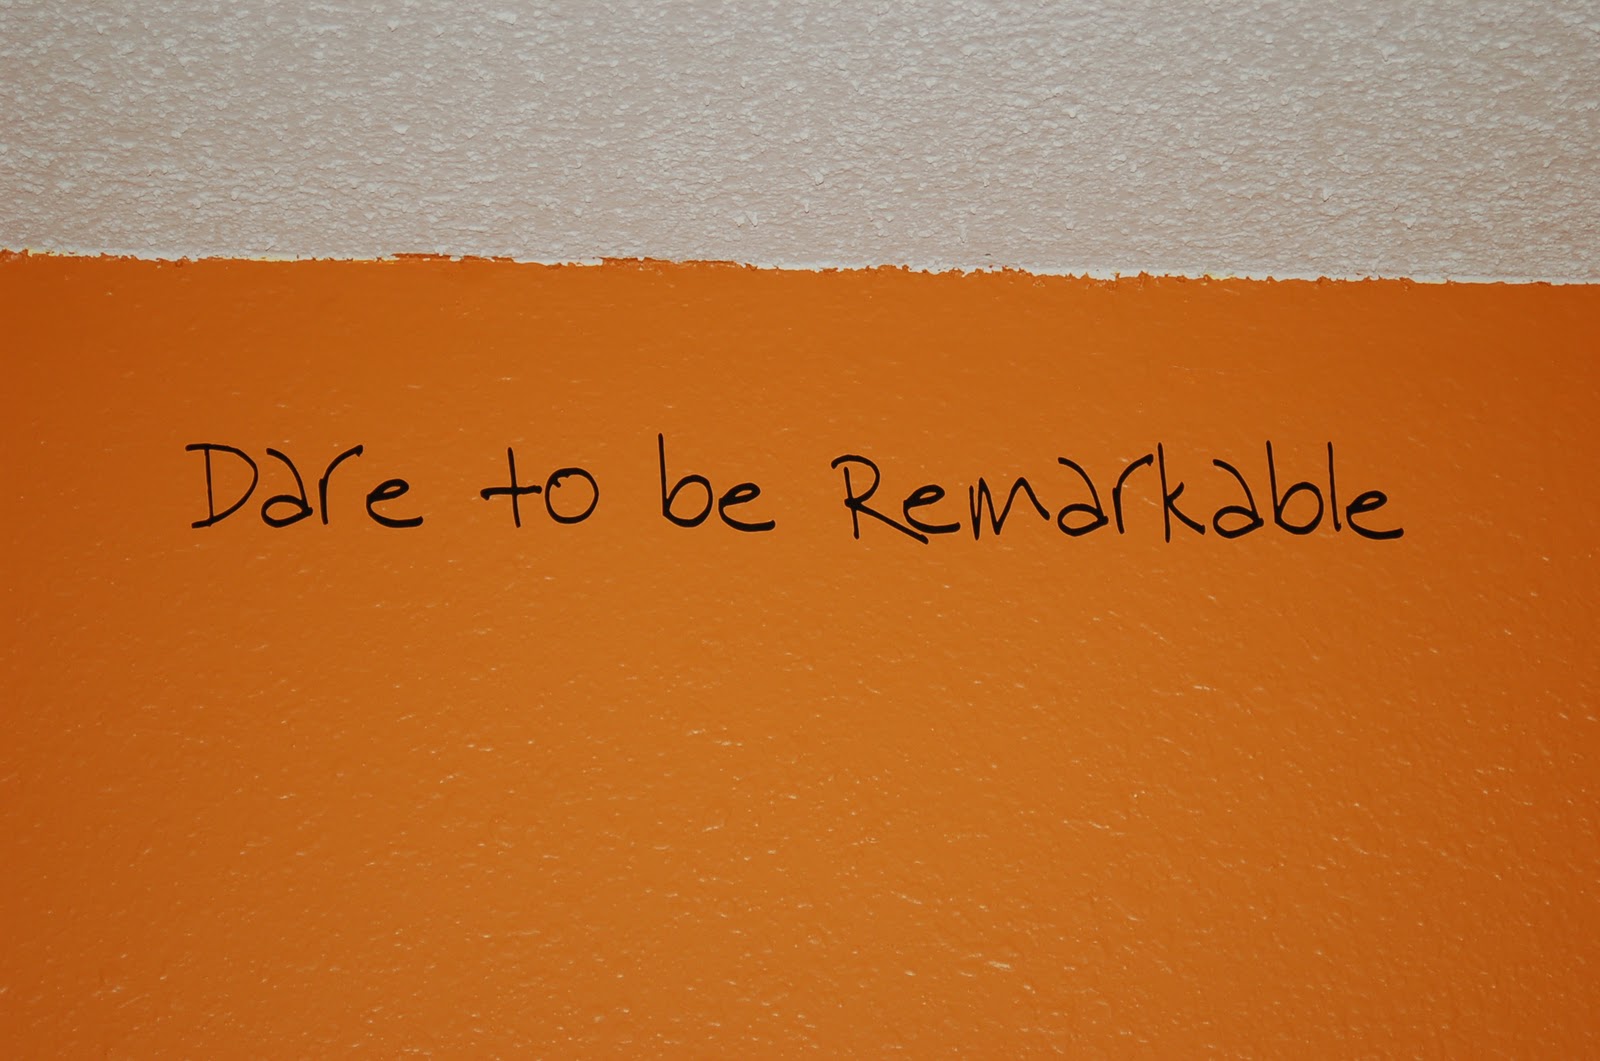 Dare to be Remarkable